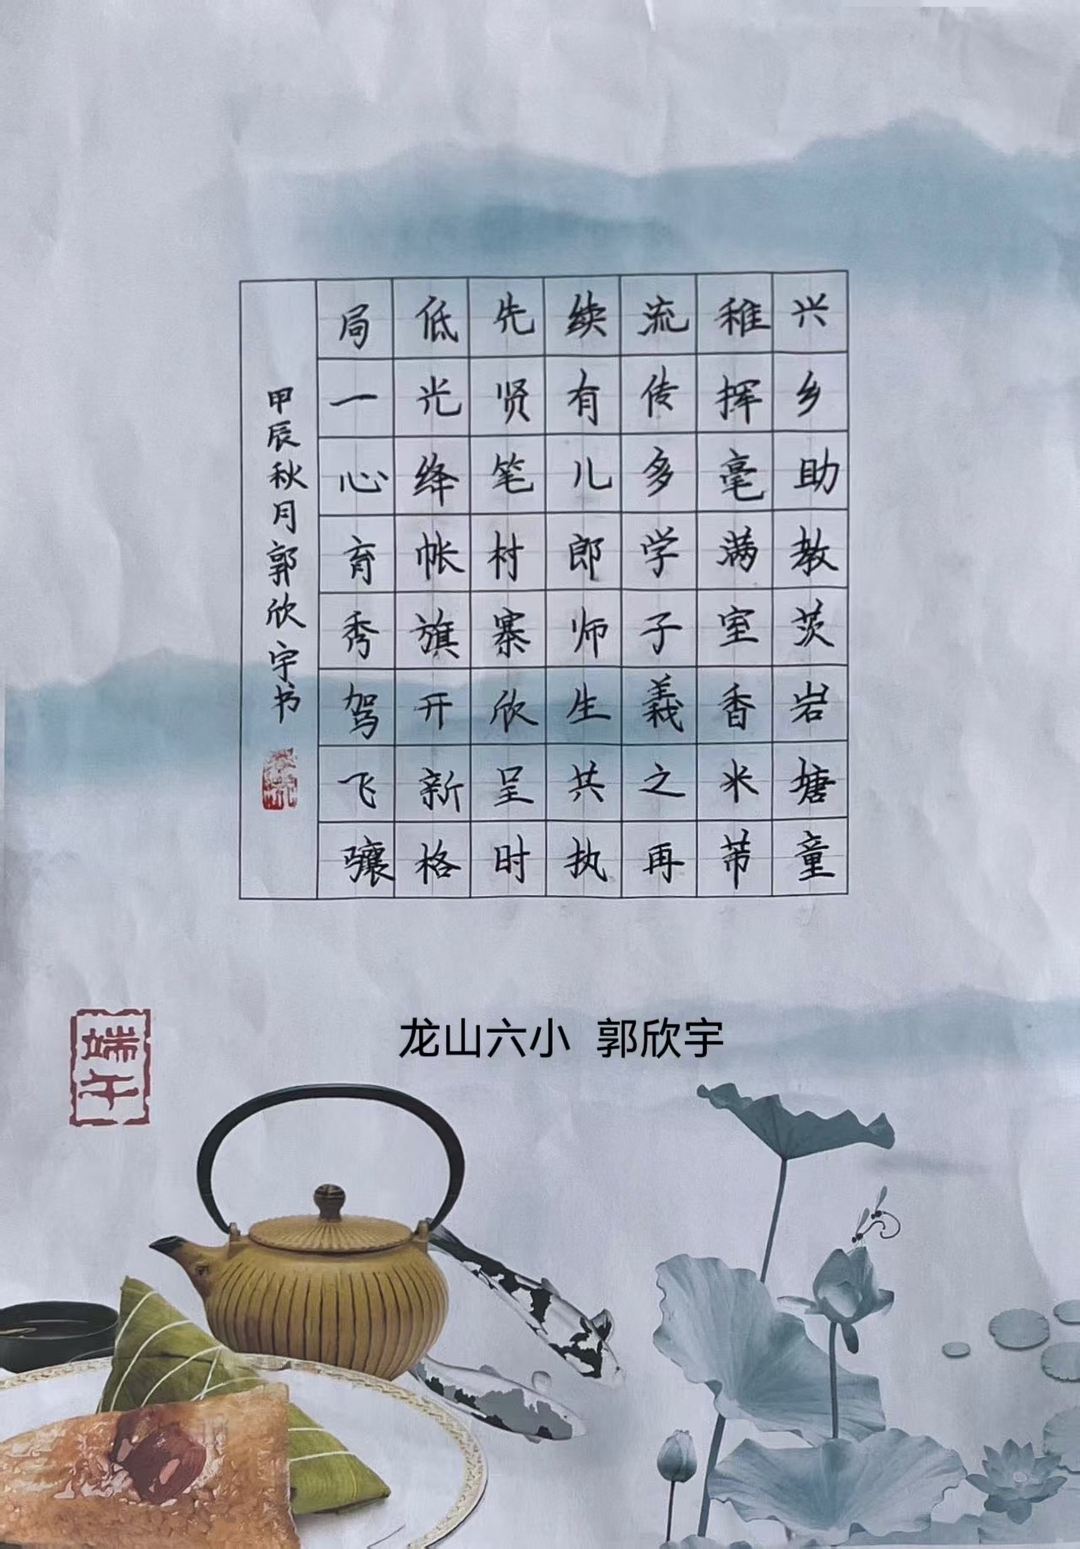 兴乡助教茨岩塘童
稚挥毫满室香米芾
流传多学子義之再
续有儿郎师生共执
先贤笔村寨欣呈时
低光绛帐旗开新格
局一心育秀驾飞骧
甲辰秋月郭欣宇书
龙山六小 郭欣宇
端午